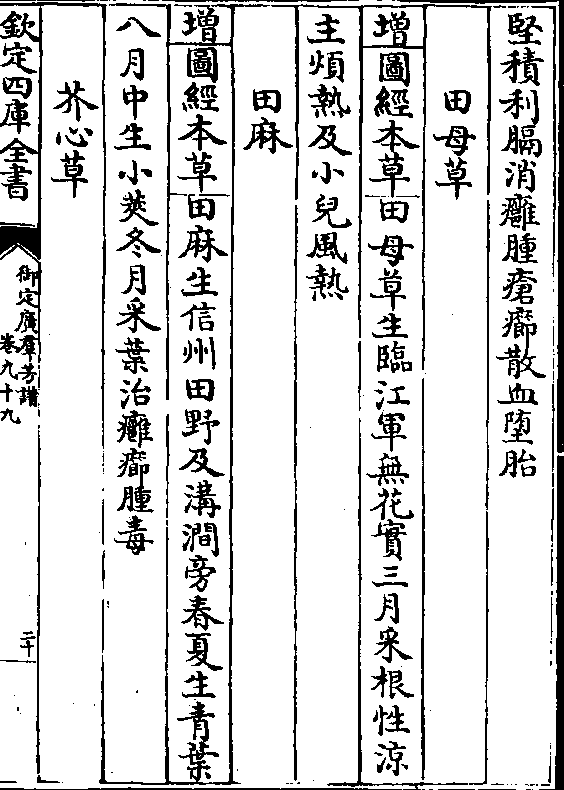 堅積利膈消癰腫瘡癤散血墮胎
田母草
增圖經本草田母草生臨江軍無花實三月采根性涼
主煩熱及小兒風熱
田麻
增圖經本草田麻生信州田野及溝澗旁春夏生青葉
八月中生小莢冬月采葉治癰癤腫毒
芥心草
欽定四庫全書
御定廣羣芳譜
卷九十九
二十